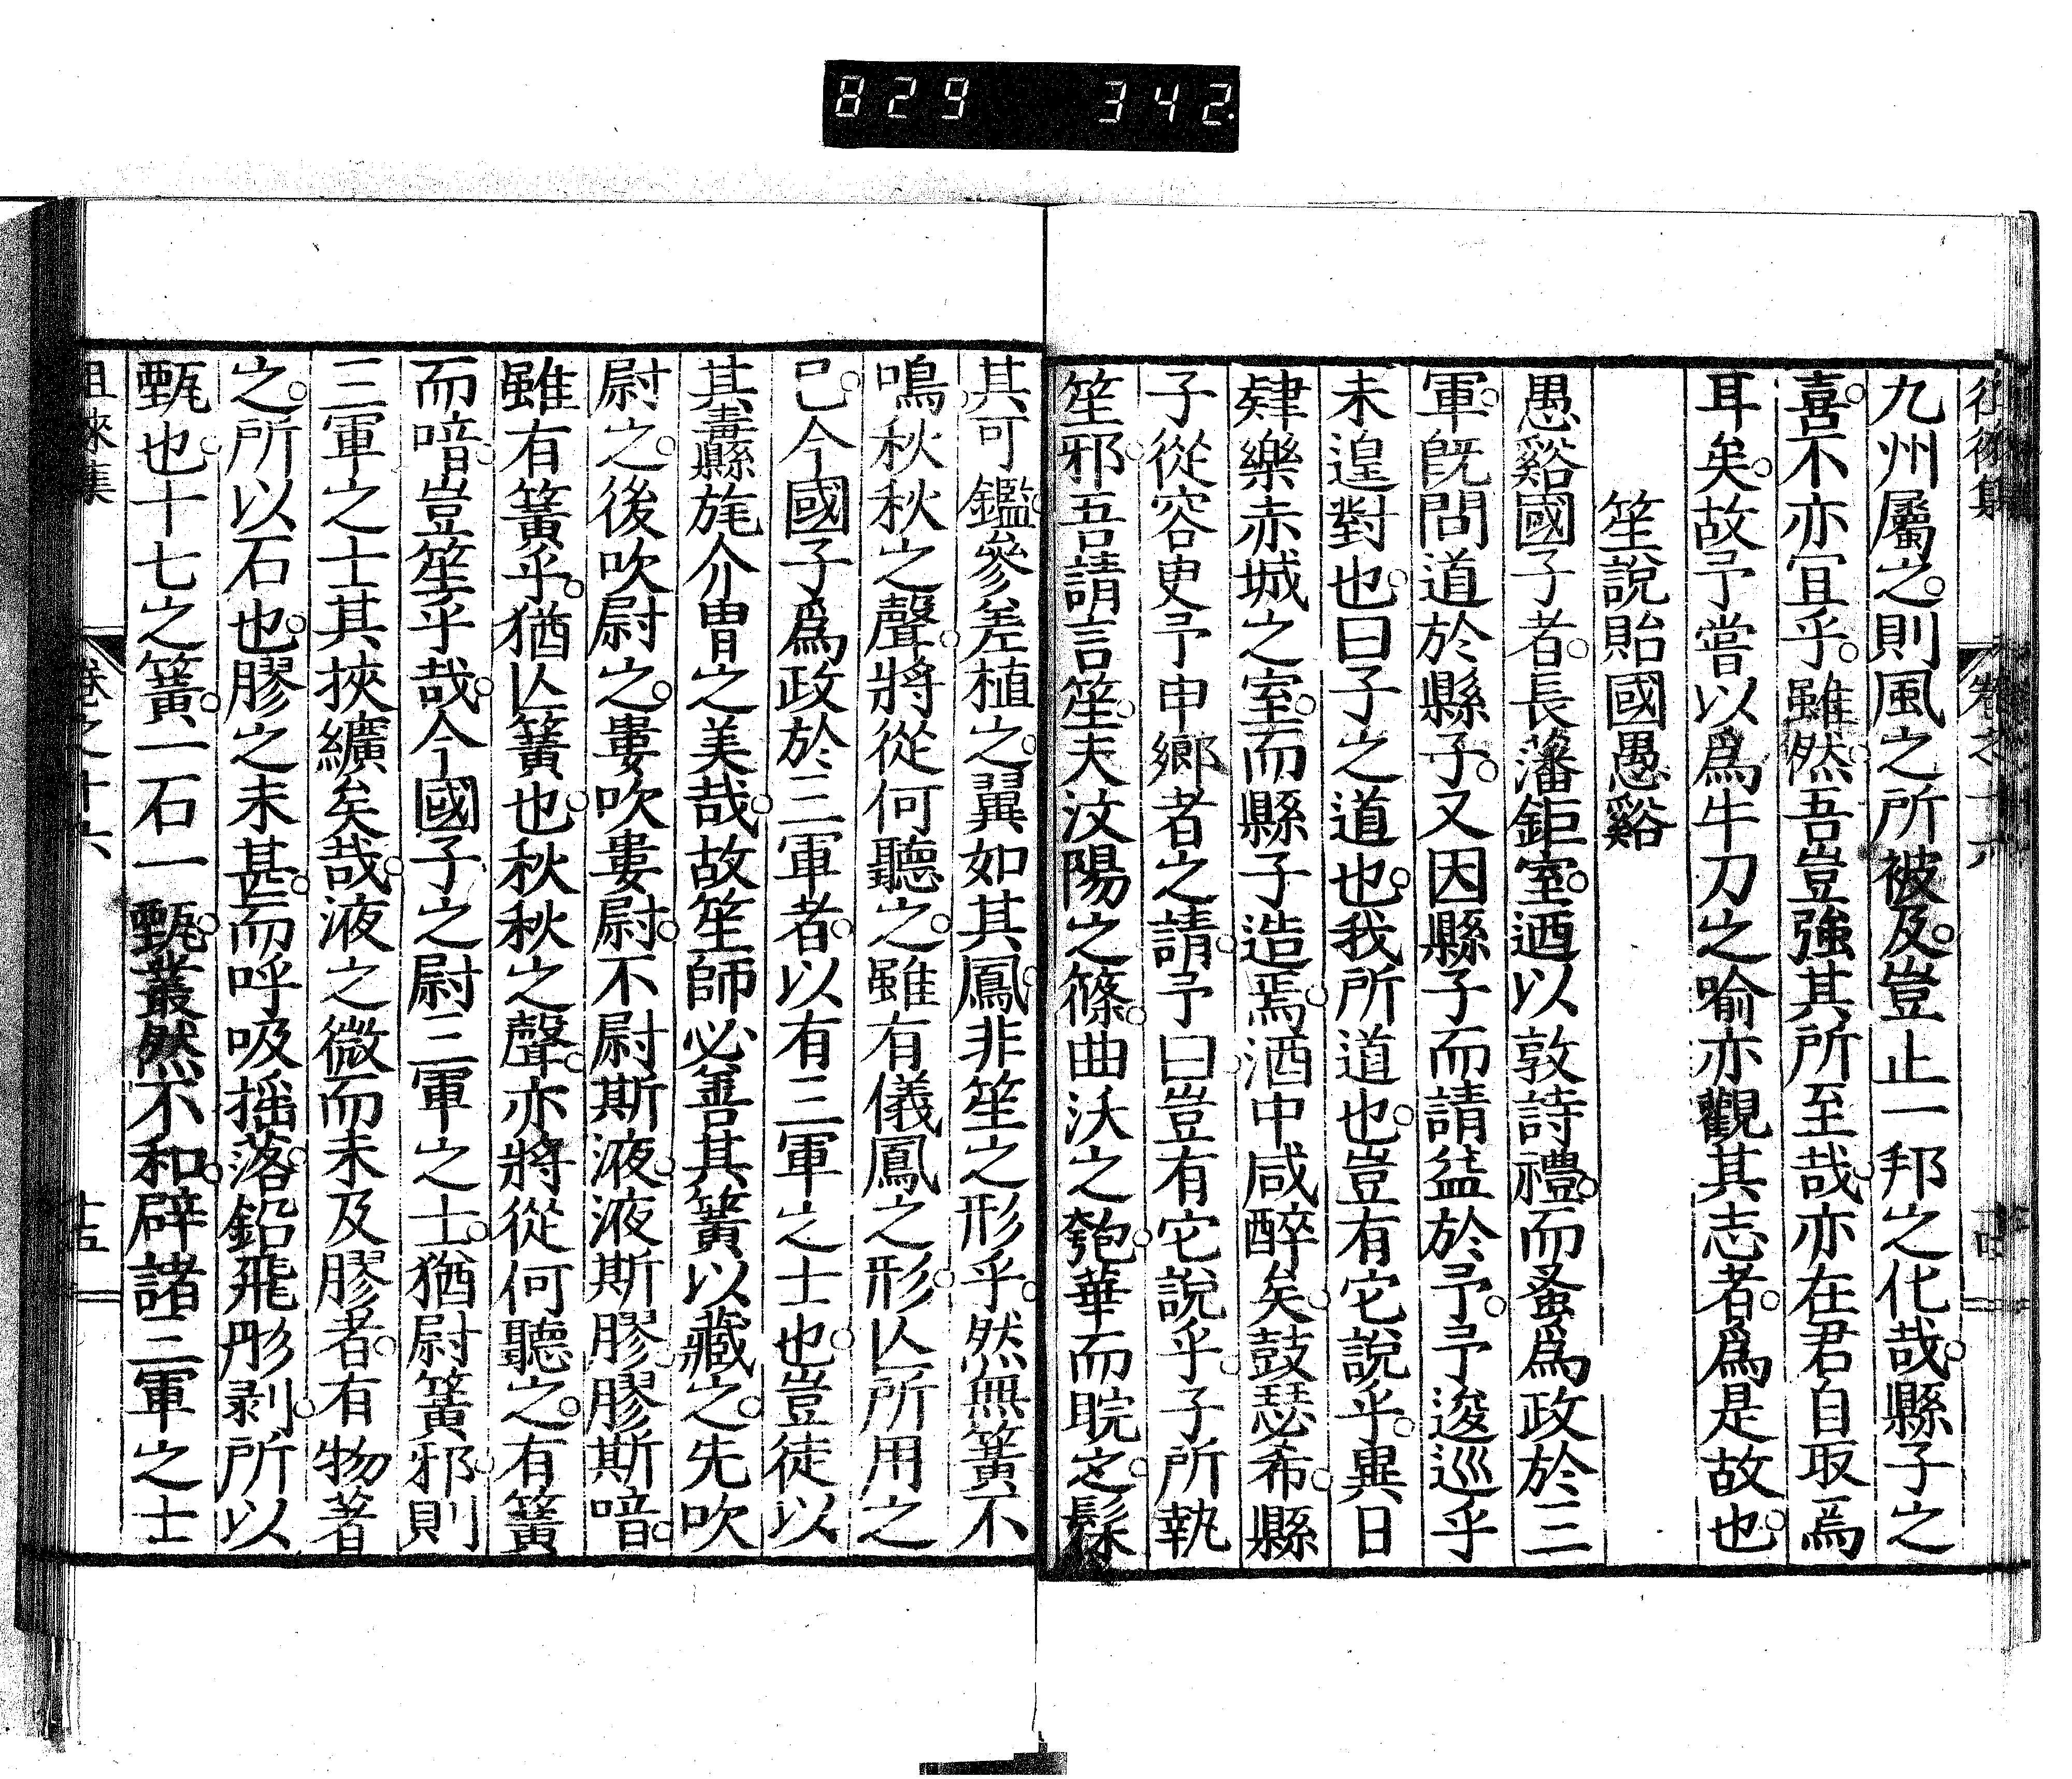 829 342
九州屬之。則風之所被及。豈止一邦之化哉。縣子之
喜。不亦宜乎。雖然。吾豈強其所至哉。亦在君自取焉
耳矣。故予嘗以爲牛刀之喻。亦觀其志者。爲是故也。
笙說貽國愚谿
愚谿國子者。長藩鉅室。迺以敦詩禮。而蚤爲政於三
軍。旣問道於縣子。又因縣子而請益於予。予逡巡乎
未遑對也。曰子之道也。我所道也。豈有它說乎。異日
肄樂赤城之室。而縣子造焉。酒中咸醉矣。鼓瑟希。縣
子從容叓予申鄉者之請。予曰。豈有它說乎。子所執
笙邪。吾請言笙。夫汶陽之篠。曲沃之匏。華而睆之。髹
其可鑑。參差植之。翼如其鳳。非笙之形乎。然無簧不
鳴。秋秋之聲。將從何聽之。雖有儀鳳之形。亾所用之
已。今國子爲政於三軍者。以有三軍之士也。豈徒以
其畫縣旄介胄之美哉。故笙師必善其簧以藏之。先吹
尉之。後吹尉之。婁吹婁尉。不尉斯液。液斯膠。膠斯喑。
雖有簧乎。猶亾簧也。秋秋之聲。亦將從何聽之。有簧
而喑。豈笙乎哉。今國子之尉三軍之士。猶尉簧邪。則
三軍之士其挾纊矣哉。液之微而未及膠者。有物著
之。所以石也。膠之未甚。而呼吸搖落。鉛飛彤剥。所以
甄也。十七之簧。一石一甄。叢然不和。辟諸三軍之士
徂徠集 卷之十六 十五